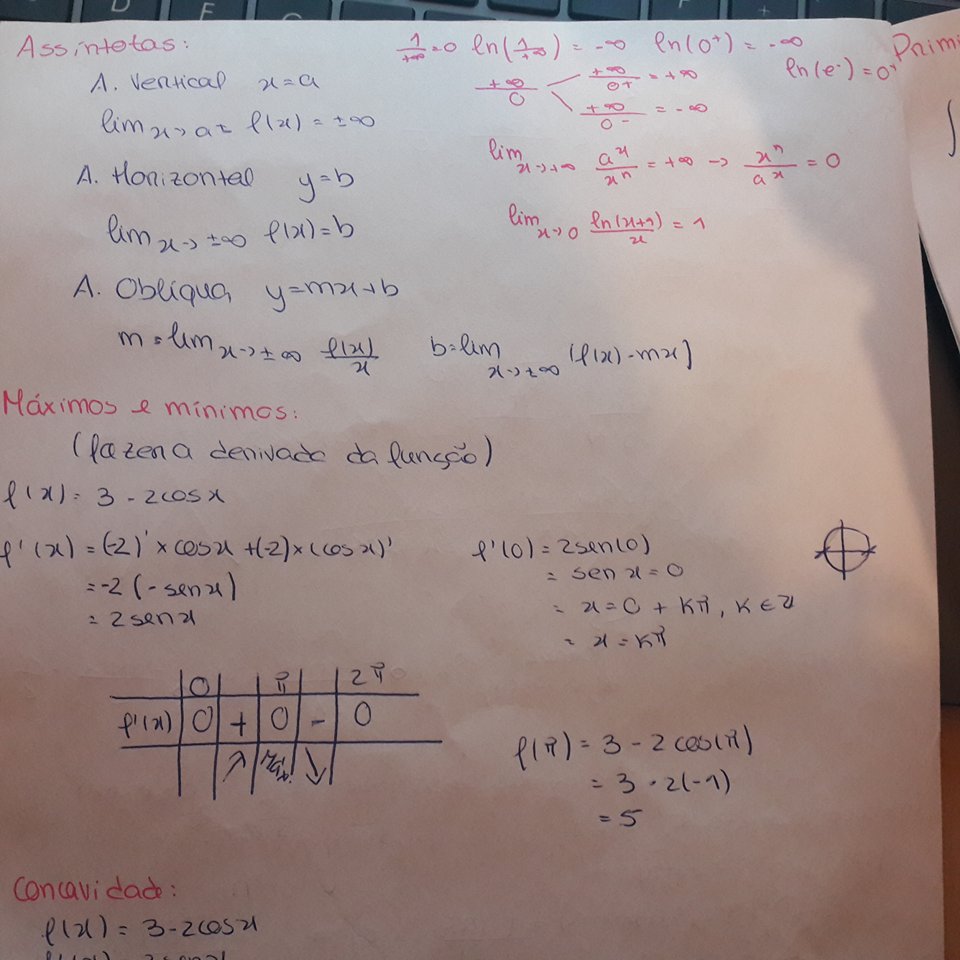 Assintotas:
A. Vertical x=a
lim x→a± f(x) = ±∞
A. Horizontal y=b
lim x→±∞ f(x)=b
A. Oblíqua y=mx+b
m = lim x→±∞ f(x)/x b=lim x→±∞ [f(x)-mx]
1/+∞=0 ln(1/+∞) = -∞ ln(0⁺) = -∞
ln(e⁻) = 0⁺
+∞/0
+∞/0+ = +∞
+∞/0- = -∞
lim x→+∞ aˣ/xⁿ = +∞ → xⁿ/aˣ = 0
lim x→0 ln(x+1)/x = 1
Primi
∫
Máximos e mínimos:
(fazer a derivada da função)
f(x) = 3 - 2cosx
f'(x) = (-2)' × cosx + (-2) × (cosx)'
= -2 (-senx)
= 2senx
f'(0) = 2sen(0)
= senx = 0
= x = 0 + Kπ, K ∈ Z
= x = Kπ
0 π 2π
f'(x) 0 + 0 - 0
↗ Máx. ↘
f(π) = 3 - 2cos(π)
= 3 - 2(-1)
= 5
Concavidade:
f(x) = 3-2cosx